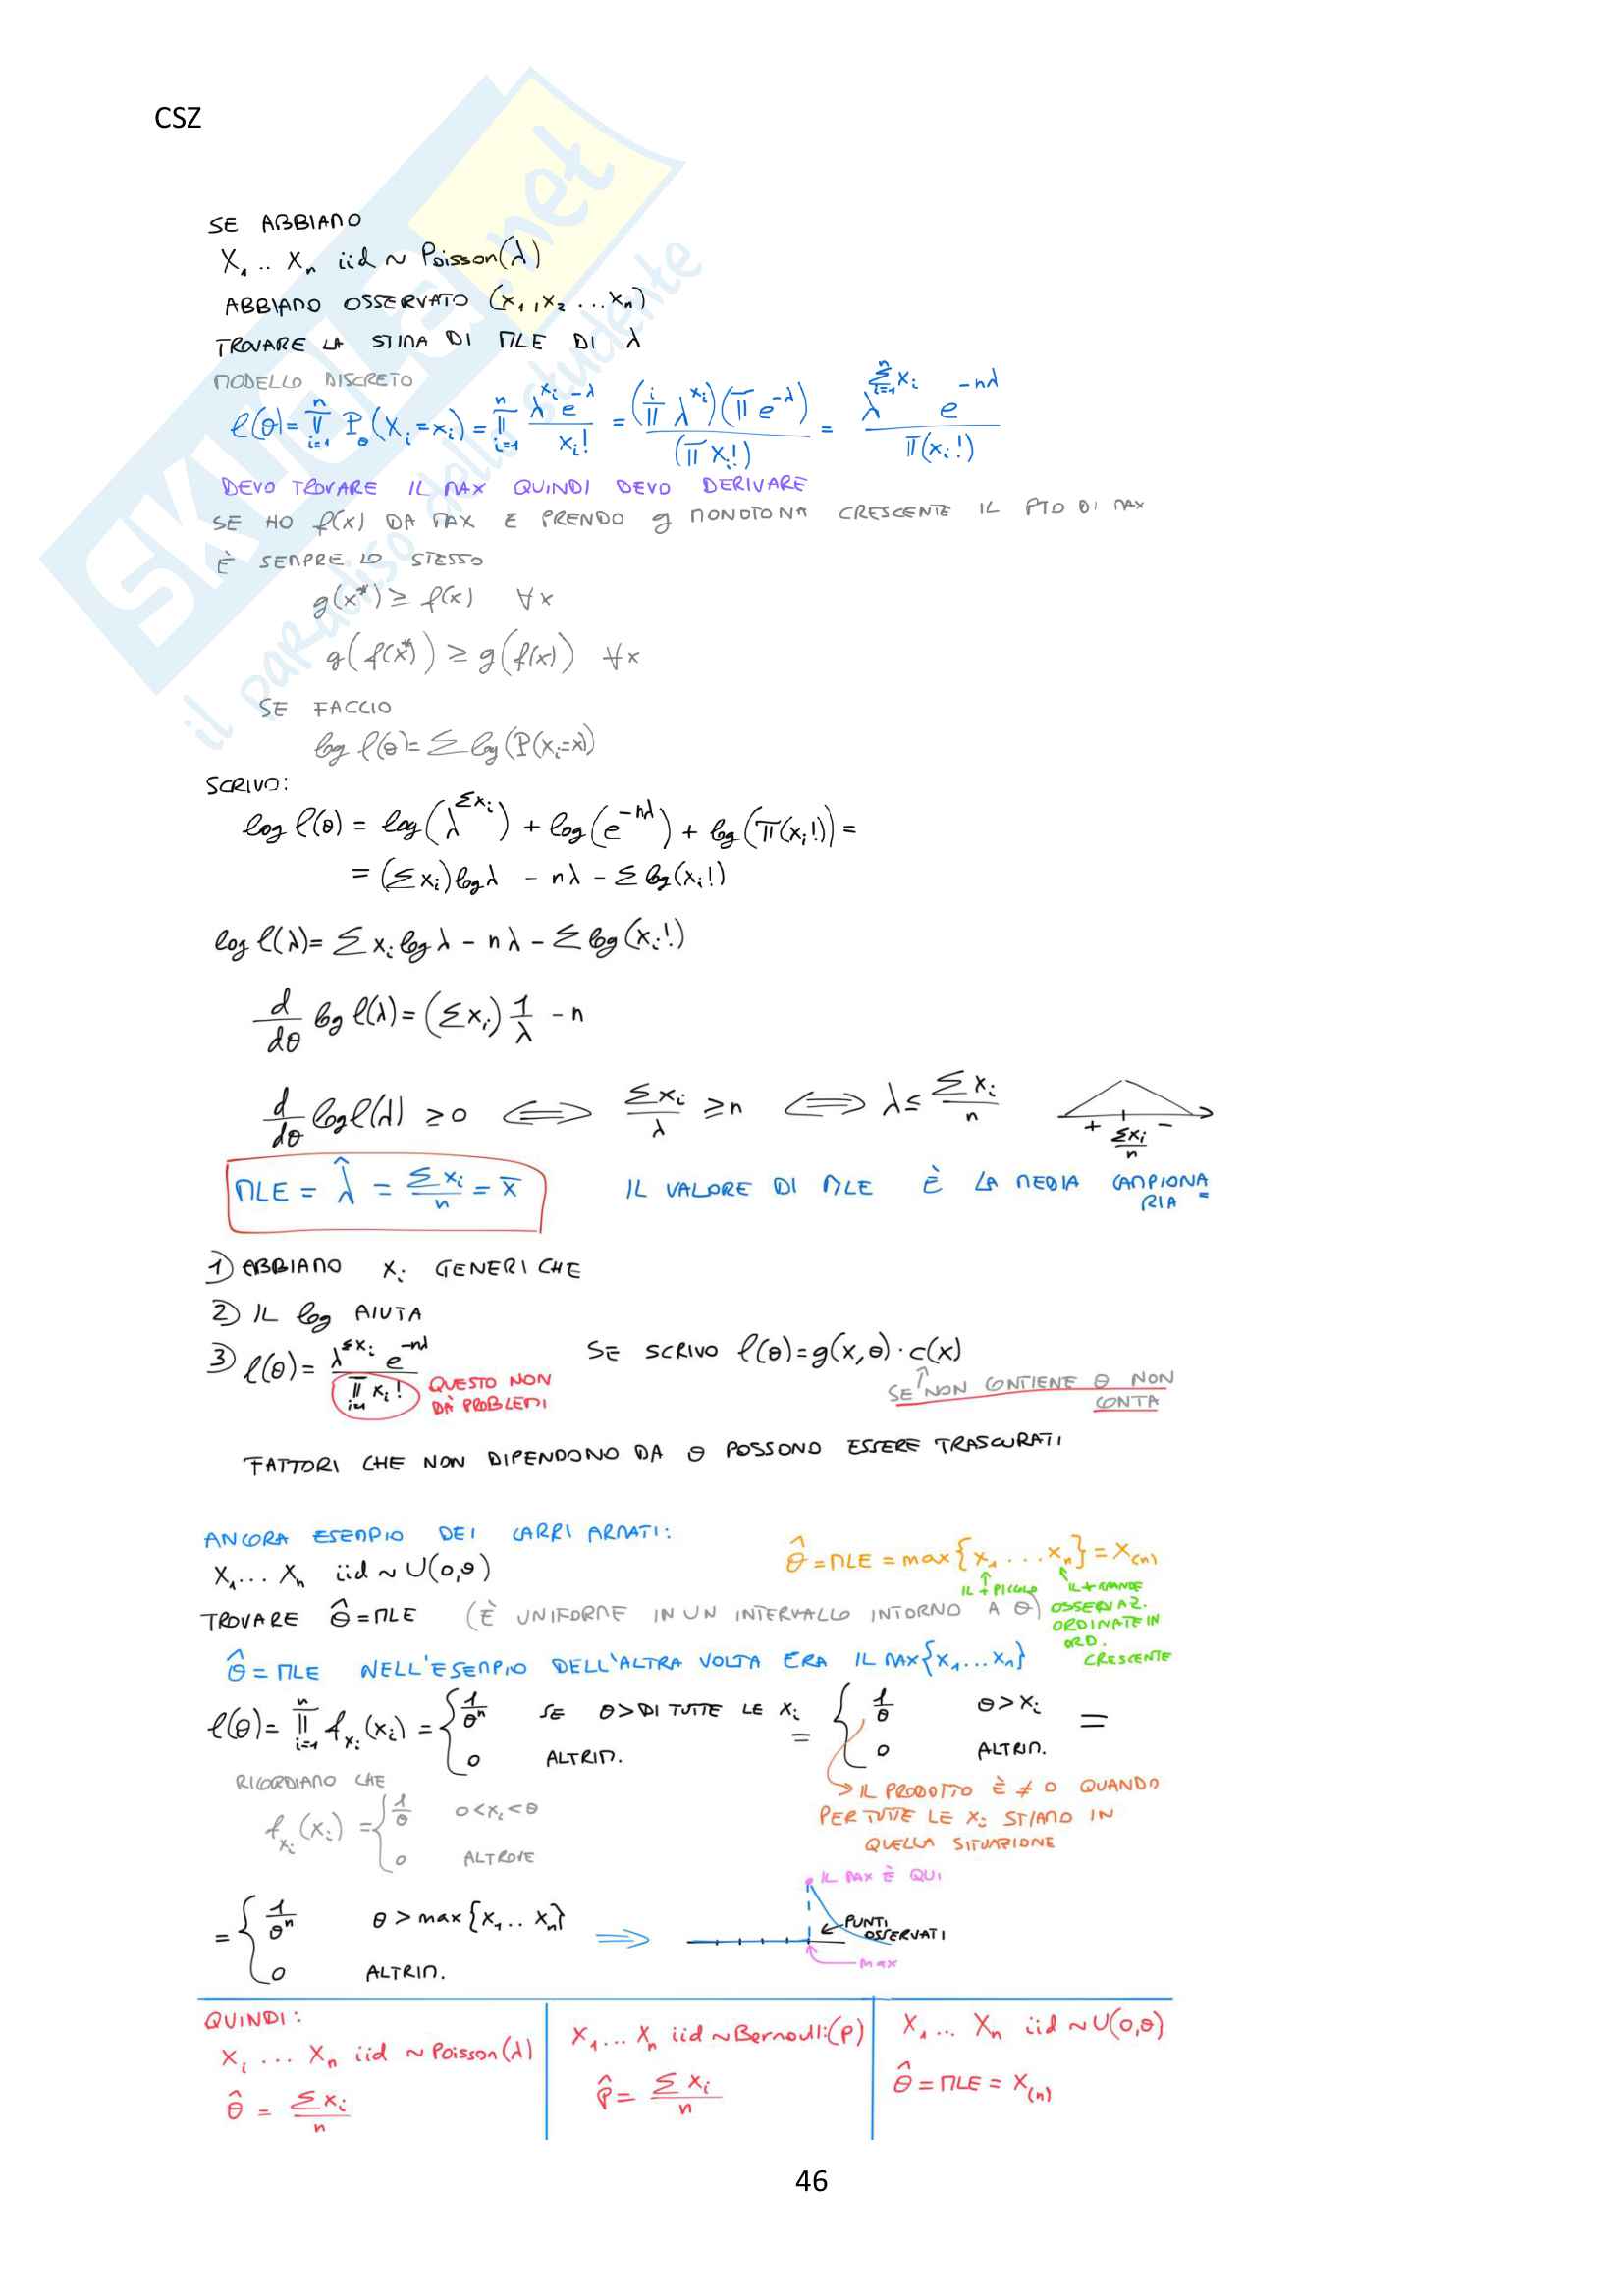 CSZ
SKUOLA.net
il paradiso dello studente
SE ABBIAMO
X₁ .. Xₙ iid ~ Poisson(λ)
ABBIAMO OSSERVATO (x₁,x₂ ...xₙ)
TROVARE LA STIMA DI MLE DI λ
MODELLO DISCRETO
ℓ(θ)= ∏ᵢ₌₁ⁿ P_θ(Xᵢ=xᵢ) = ∏ᵢ₌₁ⁿ λ^xᵢ e^-λ / xᵢ! = (∏ λ^xᵢ)(∏ e^-λ) / (∏ xᵢ!) = λ^(Σᵢ₌₁ⁿ xᵢ) e^-nλ / ∏(xᵢ!)
DEVO TROVARE IL MAX QUINDI DEVO DERIVARE
SE HO f(x) DA MAX E PRENDO g MONOTONA CRESCENTE IL PTO DI MAX
È SEMPRE LO STESSO
g(x*) ≥ f(x) ∀x
g(f(x*)) ≥ g(f(x)) ∀x
SE FACCIO
log ℓ(θ)= Σ log(P(xᵢ=x))
SCRIVO:
log ℓ(θ) = log(λ^Σxᵢ) + log(e^-nλ) + log(∏(xᵢ!)) =
= (Σxᵢ)logλ - nλ - Σ log(xᵢ!)
log ℓ(λ)= Σ xᵢ log λ - nλ - Σ log(xᵢ!)
d/dθ log ℓ(λ) = (Σxᵢ) 1/λ - n
d/dθ log ℓ(λ) ≥ 0 ⟺ Σxᵢ/λ ≥ n ⟺ λ ≤ Σxᵢ/n
+ Σxᵢ/n -
MLE = λ̂ = Σxᵢ/n = x̄ IL VALORE DI MLE È LA MEDIA CAMPIONA
RIA =
1) ABBIAMO xᵢ GENERICHE
2) IL log AIUTA
3) ℓ(θ)= λ^Σxᵢ e^-nλ / ∏ᵢ₌₁ xᵢ! SE SCRIVO ℓ(θ)=g(x,θ)·c(x)
QUESTO NON
DÀ PROBLEMI
SE NON CONTIENE θ NON
CONTA
FATTORI CHE NON DIPENDONO DA θ POSSONO ESSERE TRASCURATI
ANCORA ESEMPIO DEI CARRI ARMATI:
θ̂ = MLE = max{x₁ ... xₙ} = X₍ₙ₎
X₁... Xₙ iid ~ U(0,θ)
IL + PICCOLO
IL + GRANDE
OSSERVAZ.
ORDINATE IN
ORD.
CRESCENTE
TROVARE θ̂ = MLE (È UNIFORME IN UN INTERVALLO INTORNO A θ)
θ̂ = MLE NELL'ESEMPIO DELL'ALTRA VOLTA ERA IL MAX{x₁...xₙ}
ℓ(θ)= ∏ᵢ₌₁ⁿ f_xᵢ(xᵢ) = { 1/θⁿ SE θ > DI TUTTE LE xᵢ = { 1/θ θ>xᵢ =
0 ALTRIM. 0 ALTRIM.
RICORDIAMO CHE
f_xᵢ(xᵢ) = { 1/θ 0<xᵢ<θ
0 ALTROVE
IL PRODOTTO È ≠ 0 QUANDO
PER TUTTE LE xᵢ STIAMO IN
QUELLA SITUAZIONE
= { 1/θⁿ θ > max{x₁.. xₙ} ⟹
0 ALTRIM.
IL MAX È QUI
PUNTI
OSSERVATI
max
QUINDI:
Xᵢ ... Xₙ iid ~ Poisson(λ)
θ̂ = Σxᵢ/n
X₁... Xₙ iid ~ Bernoulli(p)
p̂ = Σxᵢ/n
X₁... Xₙ iid ~ U(0,θ)
θ̂ = MLE = X₍ₙ₎
46